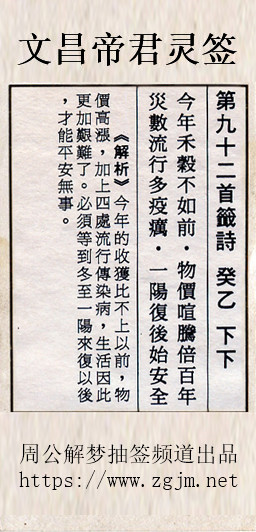 文昌帝君灵签
第九十二首籤詩 癸乙 下下
今年禾穀不如前．物價喧騰倍百年
災數流行多疫癘．一陽復後始安全
《解析》今年的收獲比不上以前，物
價高漲，加上四處流行傳染病，生活因此
更加艱難了。必須等到冬至一陽來復以後
，才能平安無事。
周公解梦抽签频道出品
https://www.zgjm.net